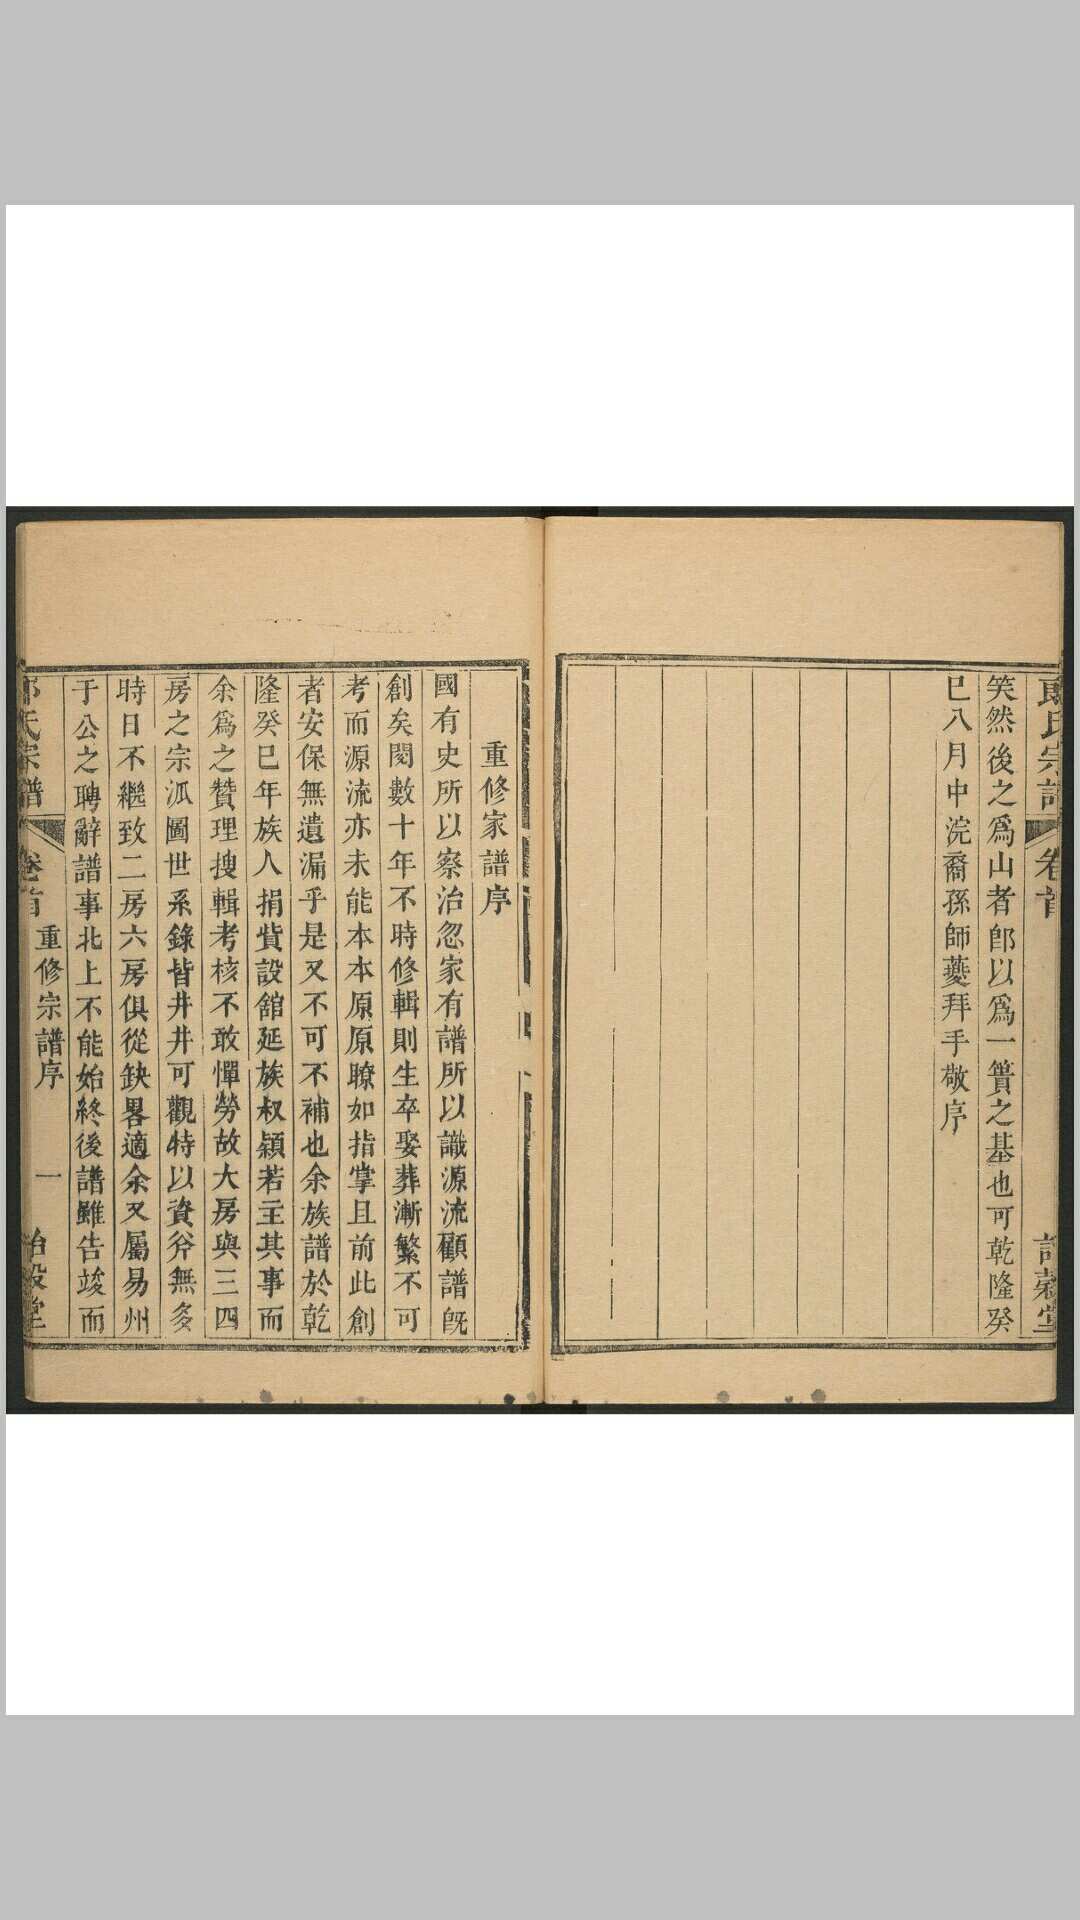 笑然後之爲山者卽以爲一簣之基也可乾隆癸
巳八月中浣裔孫師夔拜手敬序
重修家譜序
國有史所以察治忽家有譜所以識源流顧譜旣
創矣閱數十年不時修輯則生卒娶葬漸繁不可
考而源流亦未能本本原原瞭如指掌且前此創
者安保無遺漏乎是又不可不補也余族譜於乾
隆癸巳年族人捐貲設舘延族叔穎若主其事而
余爲之贊理搜輯考核不敢憚勞故大房與三四
房之宗派圖世系錄皆井井可觀特以資斧無多
時日不繼致二房六房俱從缺畧適余又屬易州
于公之聘辭譜事北上不能始終後譜雖告竣而
氏宗譜 卷首 重修宗譜序 一